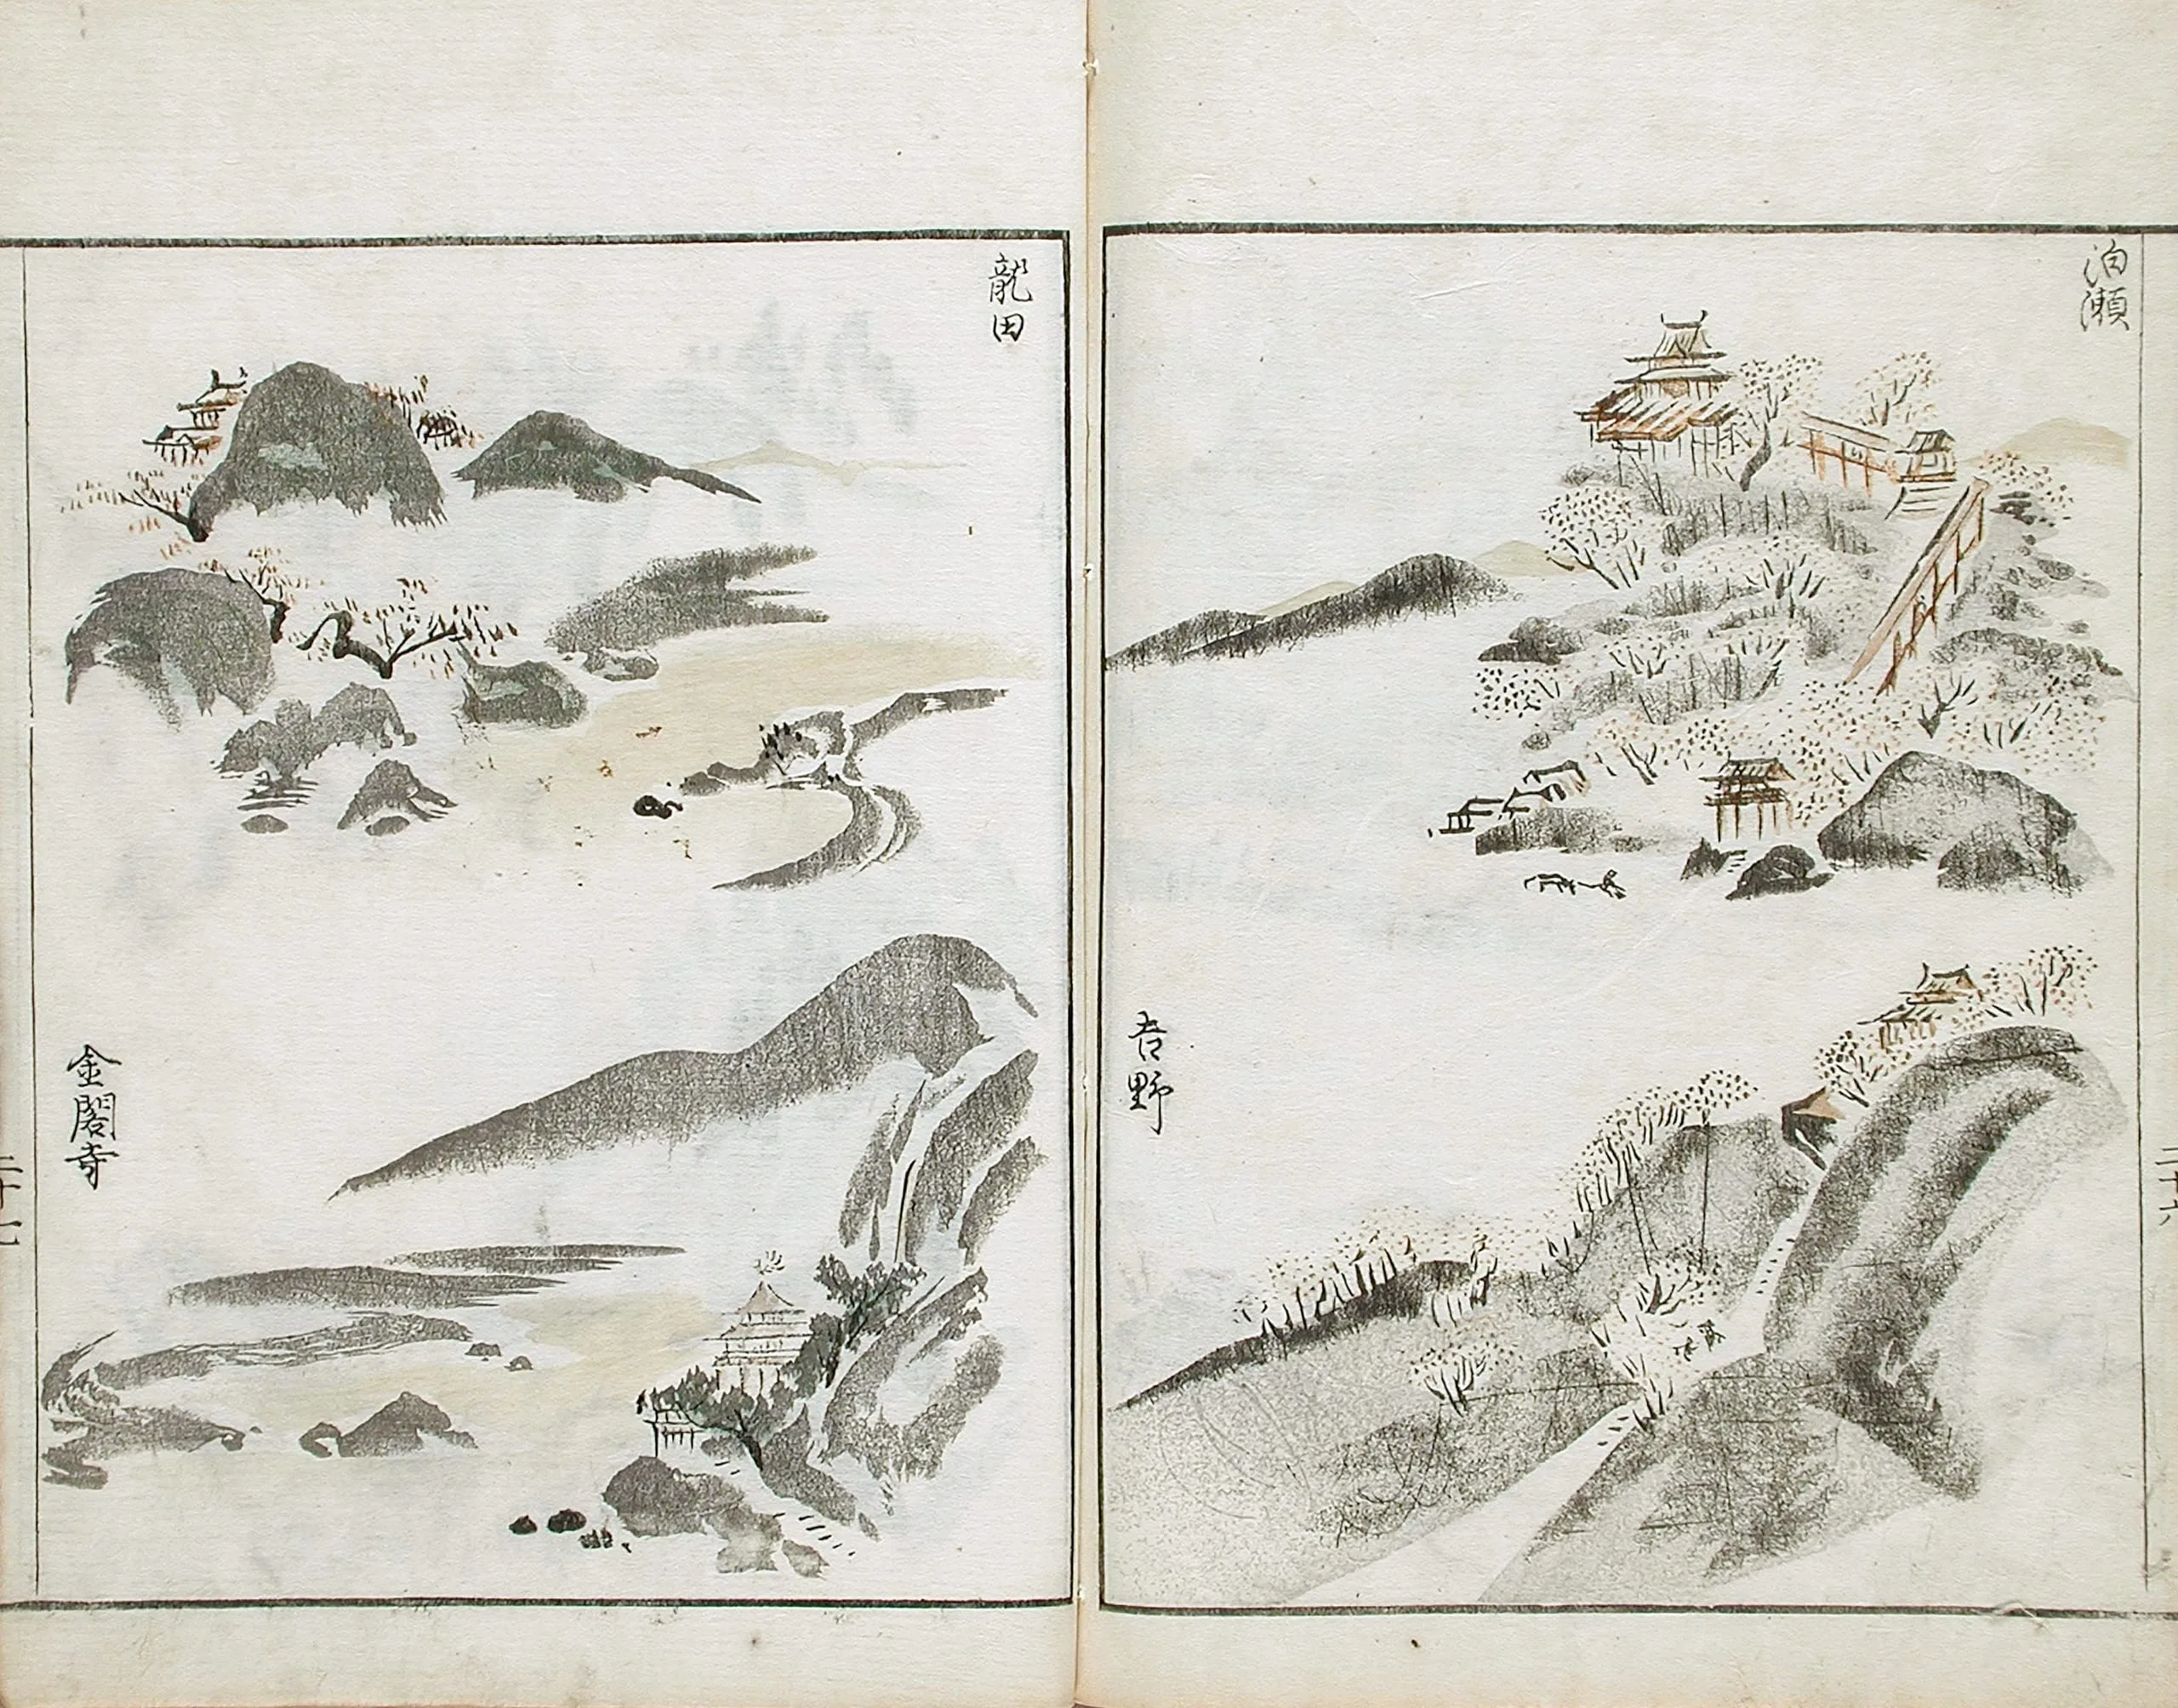 泊瀬
吉野
二十六
龍田
金閣寺
二十七